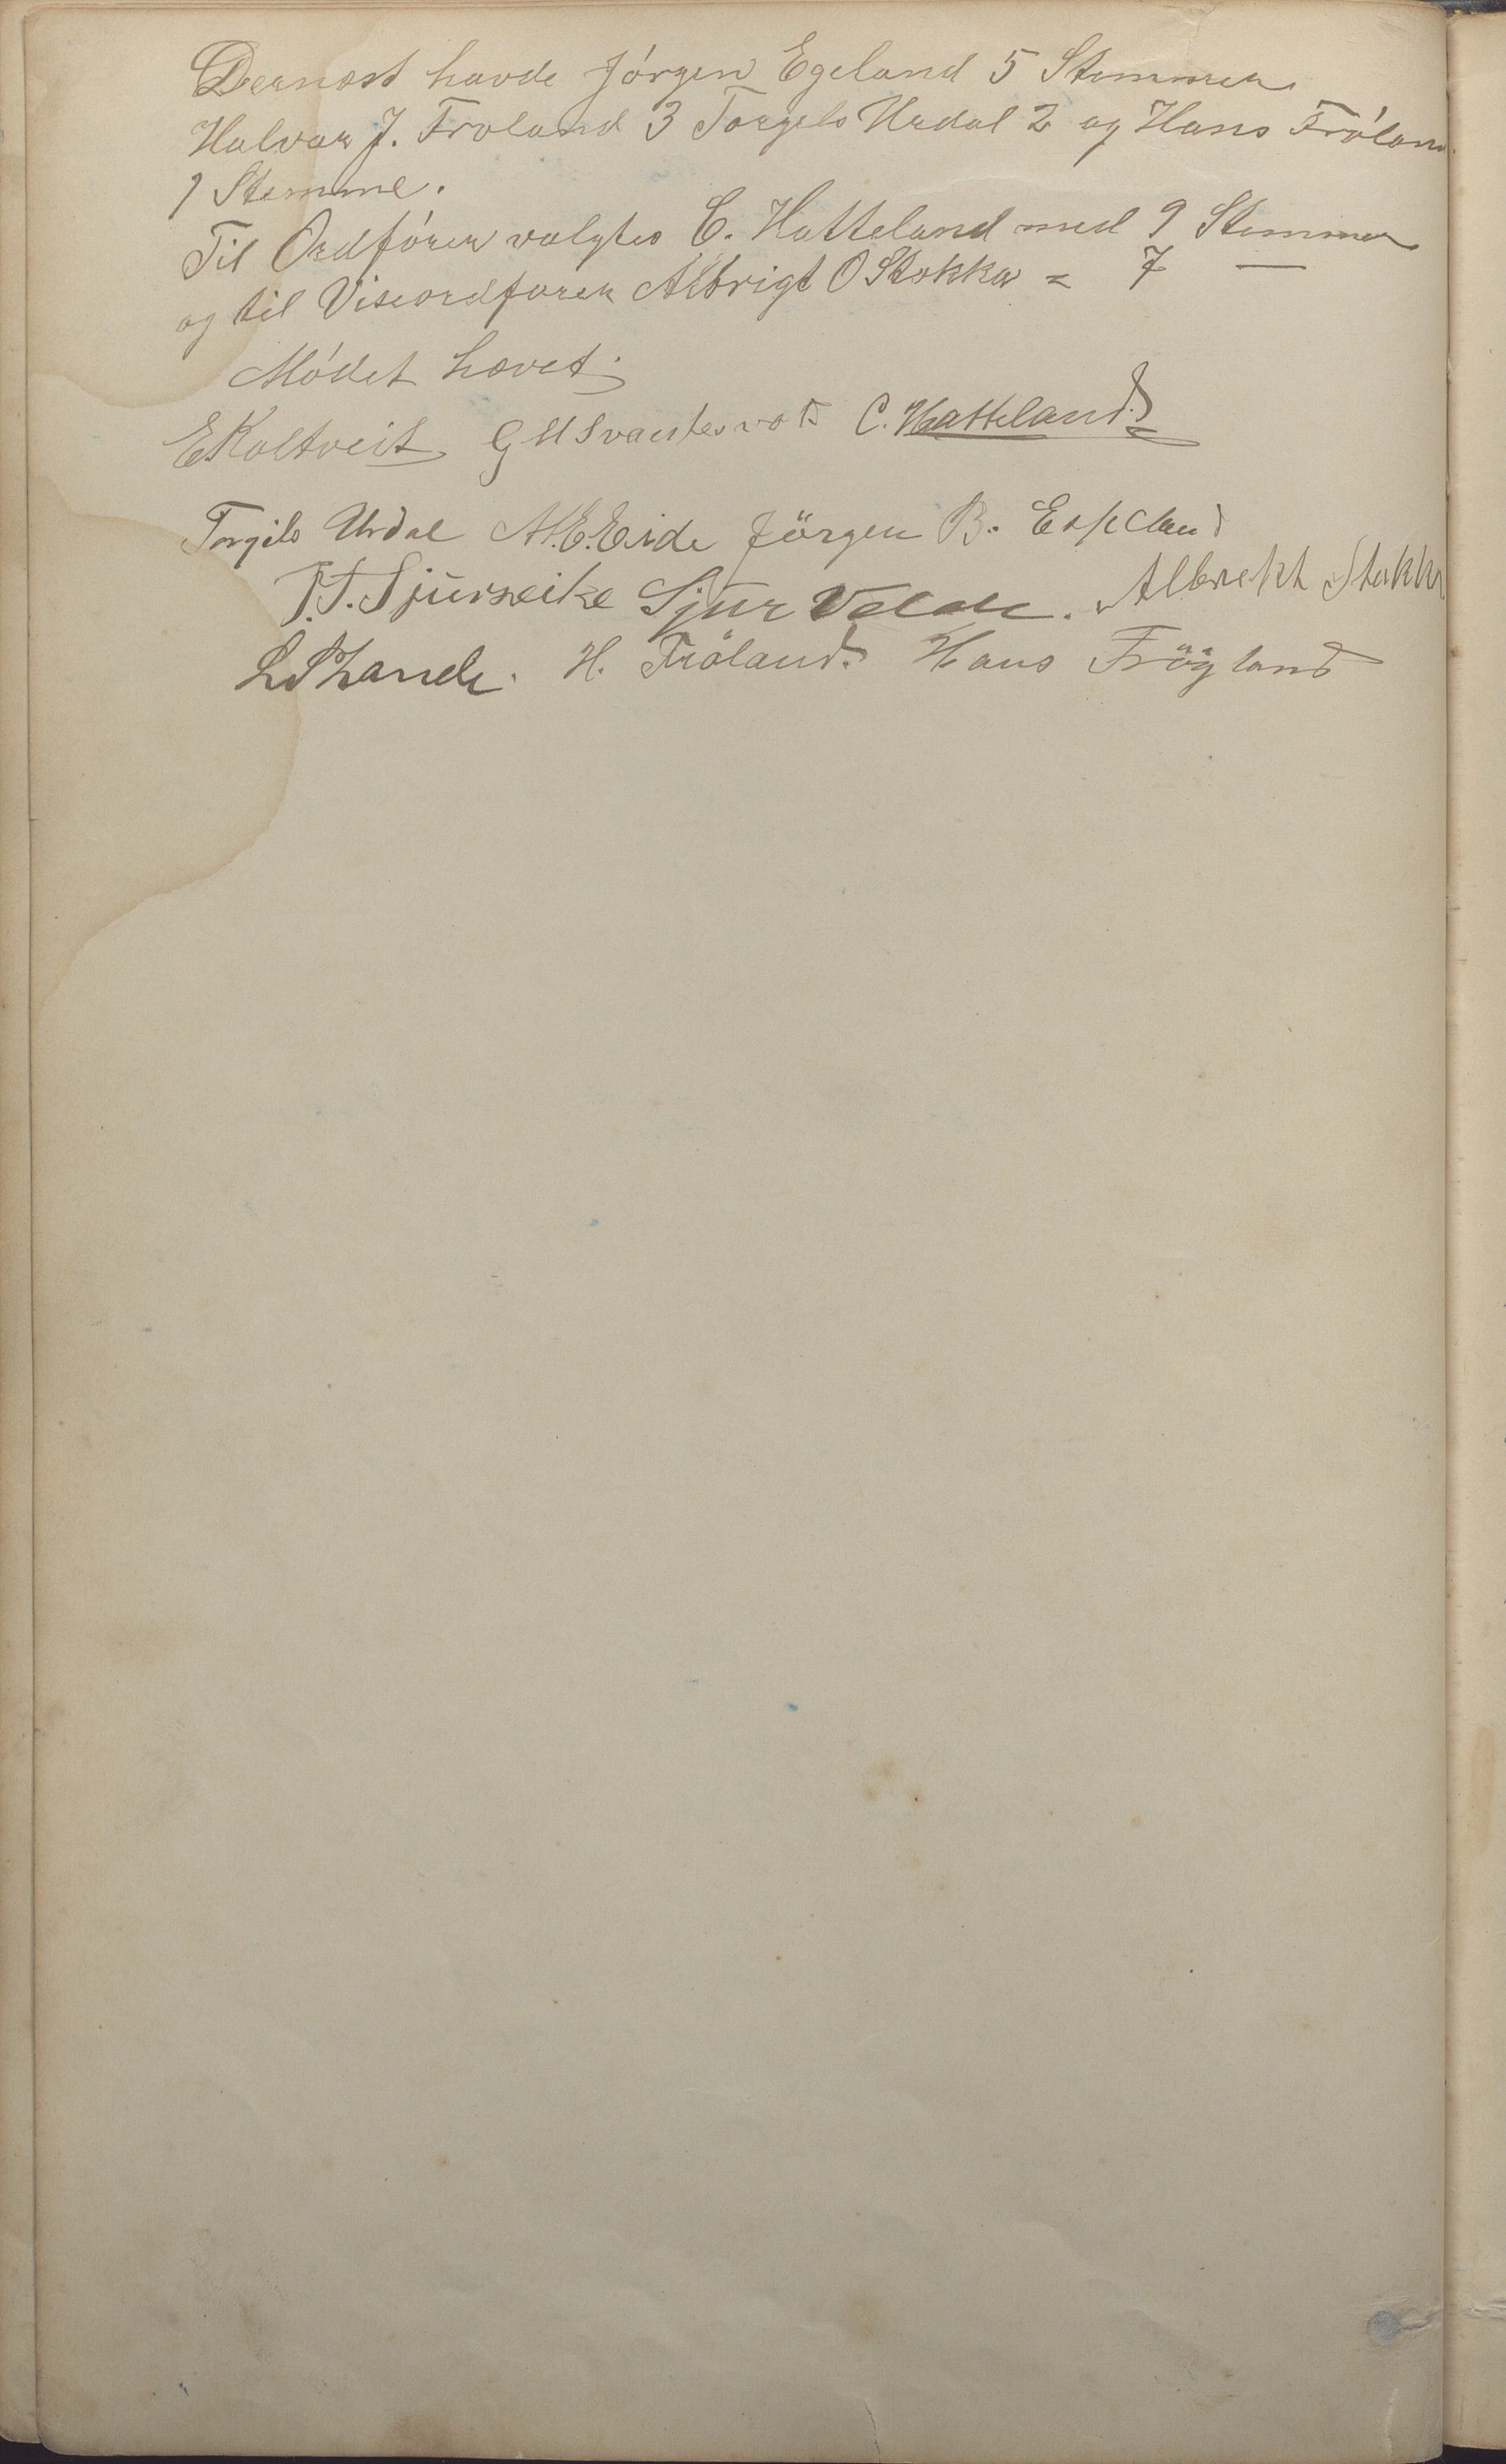 Dernæst havde Jórgen Egeland 5 Stemmer
Halvor J. Froland 3 Torgils Urdal 2 og Hans Fróland
1 Stemme.
Til Ordfórer valgtes C. Hatteland med 9 Stemmer
og til Viseordforer Albrigt O Stokka = 7 —
Módet hævet.
E Koltveit G M C. Hatteland
Torgils Urdal A.E. Eide Jörgen B. Espeland
Sjurseike Sjur Velde. Albrekt Stakka
H. Fröland. Hans Frögland